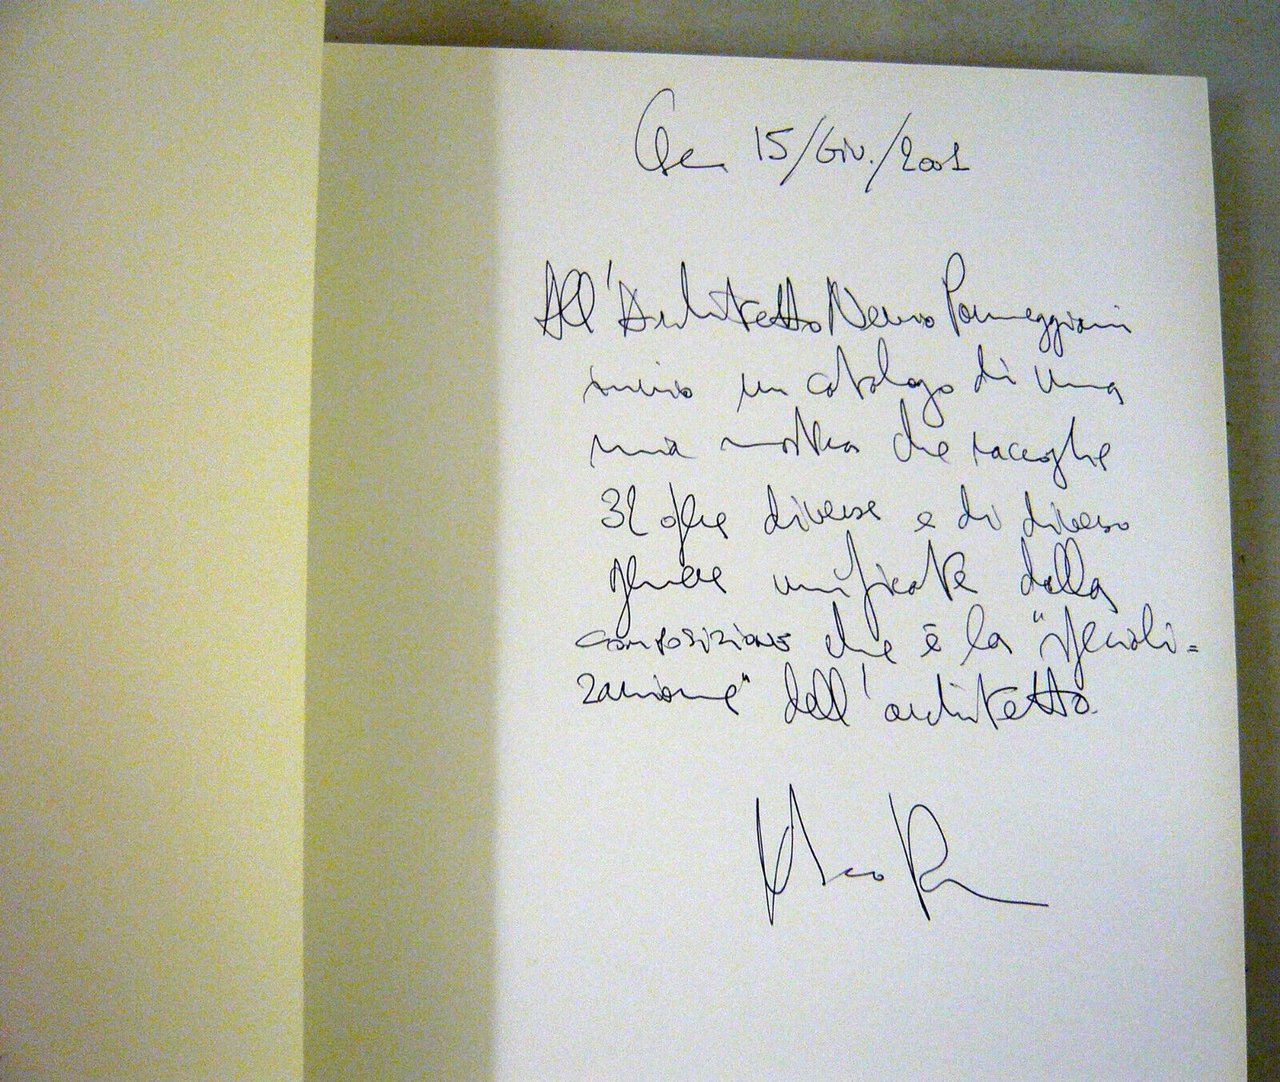 15/Giu./2001
All'Architetto Nevio Parmeggiani
invio un catalogo di una
mia mostra che raccoglie
32 opere diverse e di diverso
genere unificate dalla
composizione che è la "speciali=
zazione" dell'architetto.